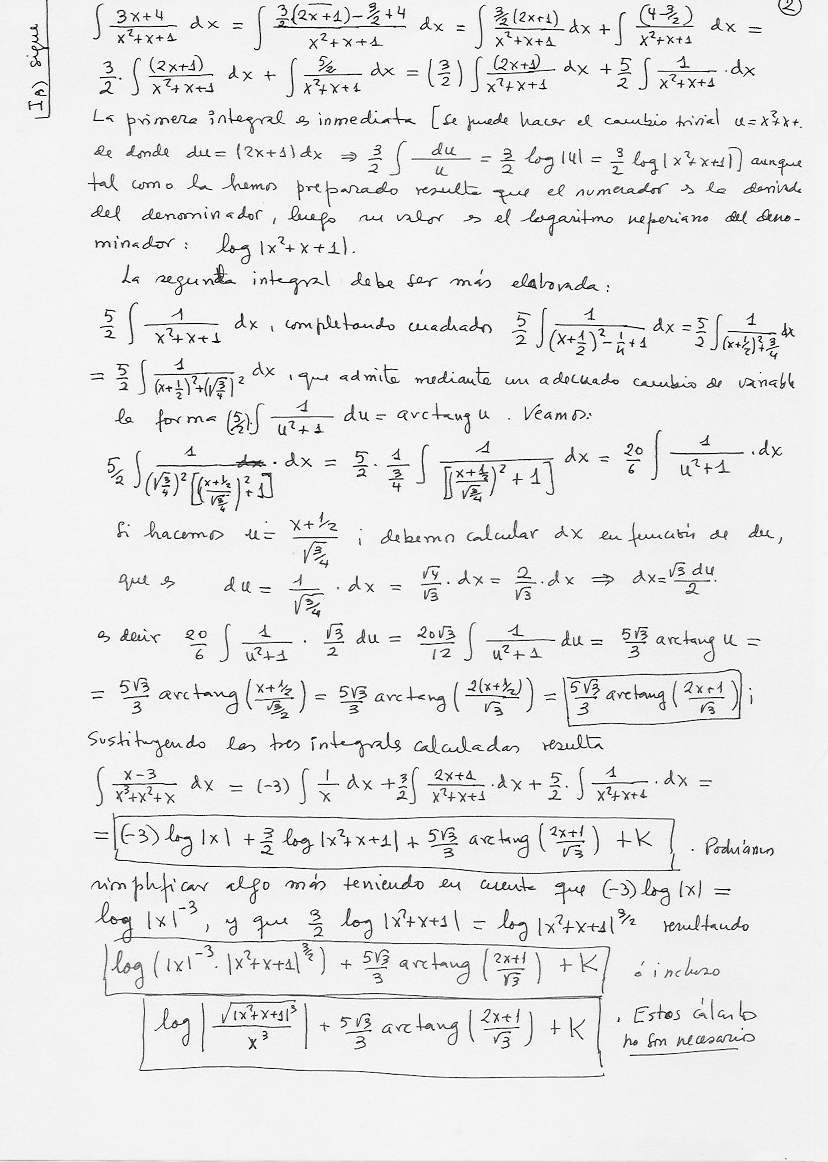 ②
I A) sigue
∫ (3x+4)/(x²+x+1) dx = ∫ (3/2(2x+1)-3/2+4)/(x²+x+1) dx = ∫ (3/2(2x+1))/(x²+x+1) dx + ∫ (4-3/2)/(x²+x+1) dx =
3/2 · ∫ (2x+1)/(x²+x+1) dx + ∫ (5/2)/(x²+x+1) dx = (3/2) ∫ (2x+1)/(x²+x+1) dx + 5/2 ∫ 1/(x²+x+1) · dx
La primera integral es inmediata [se puede hacer el cambio trivial u=x²+x+.
de donde du=(2x+1)dx ⇒ 3/2 ∫ du/u = 3/2 log|u| = 3/2 log|x²+x+1|] aunque
tal como la hemos preparado resulta que el numerador es la derivada
del denominador, luego su valor es el logaritmo neperiano del deno-
minador: log|x²+x+1|.
La segunda integral debe ser más elaborada:
5/2 ∫ 1/(x²+x+1) dx, completando cuadrados 5/2 ∫ 1/((x+1/2)²-1/4+1) dx = 5/2 ∫ 1/((x+1/2)²+3/4) dx
= 5/2 ∫ 1/((x+1/2)²+(√3/4)²) dx, que admite mediante un adecuado cambio de variable
la forma (5/2)·∫ 1/(u²+1) du = arctang u. Veamos:
5/2 ∫ 1/((√3/4)²[((x+1/2)/√3/4)²+1]) · dx = 5/2 · 1/(3/4) ∫ 1/[((x+1/2)/√3/4)²+1] dx = 20/6 ∫ 1/(u²+1) · dx
Si hacemos u = (x+1/2)/√3/4 ; debemos calcular dx en función de du,
que es du = 1/√3/4 · dx = √4/√3 · dx = 2/√3 · dx ⇒ dx = √3 du/2.
es decir 20/6 ∫ 1/(u²+1) · √3/2 du = 20√3/12 ∫ 1/(u²+1) du = 5√3/3 arctang u =
= 5√3/3 arctang((x+1/2)/(√3/2)) = 5√3/3 arctang(2(x+1/2)/√3) = 5√3/3 arctang((2x+1)/√3) ;
Sustituyendo las tres integrals calculadas resulta
∫ (x-3)/(x³+x²+x) dx = (-3) ∫ 1/x dx + 3/2 ∫ (2x+1)/(x²+x+1) · dx + 5/2 · ∫ 1/(x²+x+1) · dx =
= (-3) log|x| + 3/2 log|x²+x+1| + 5√3/3 arctang((2x+1)/√3) + K . Podríamos
simplificar algo más teniendo en cuenta que (-3)log|x| =
log|x|⁻³, y que 3/2 log|x²+x+1| = log|x²+x+1|^3/2 resultando
log(|x|⁻³ · |x²+x+1|^3/2) + 5√3/3 arctang((2x+1)/√3) + K ó incluso
log|√|x²+x+1|³/x³| + 5√3/3 arctang((2x+1)/√3) + K . Estos cálculos
no son necesarios